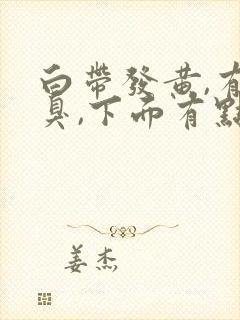 白帶發黄,有
臭,下面有點
姜杰